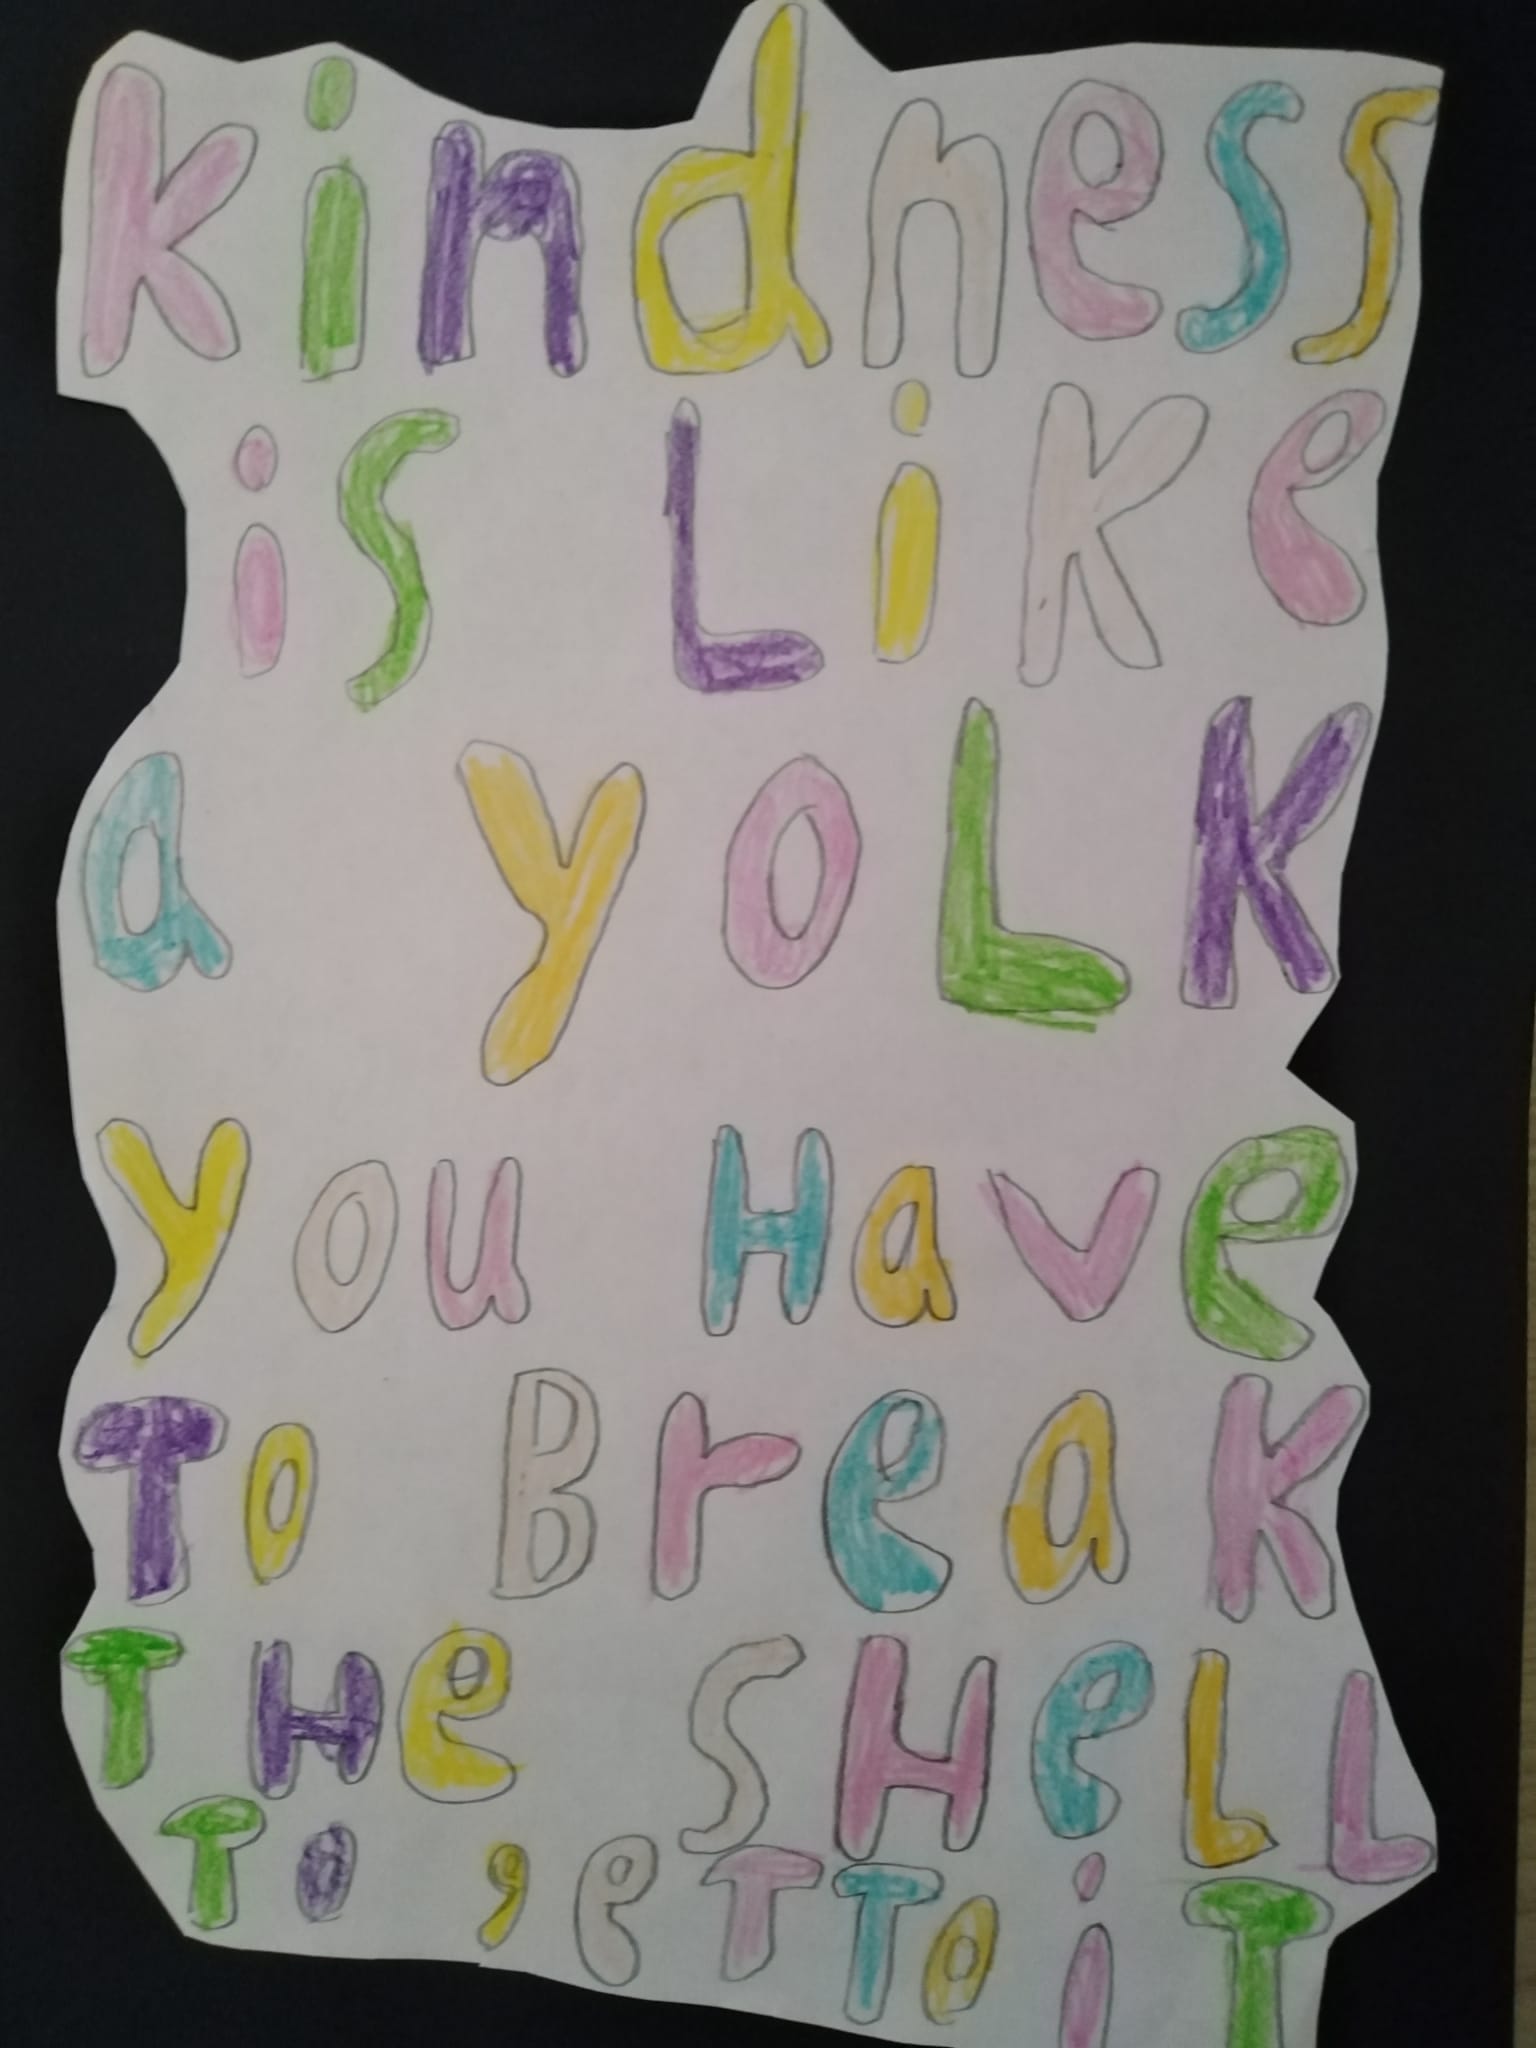 kindness
is Like
a yoLK
you Have
To Break
THe SHeLL
To geT To iT